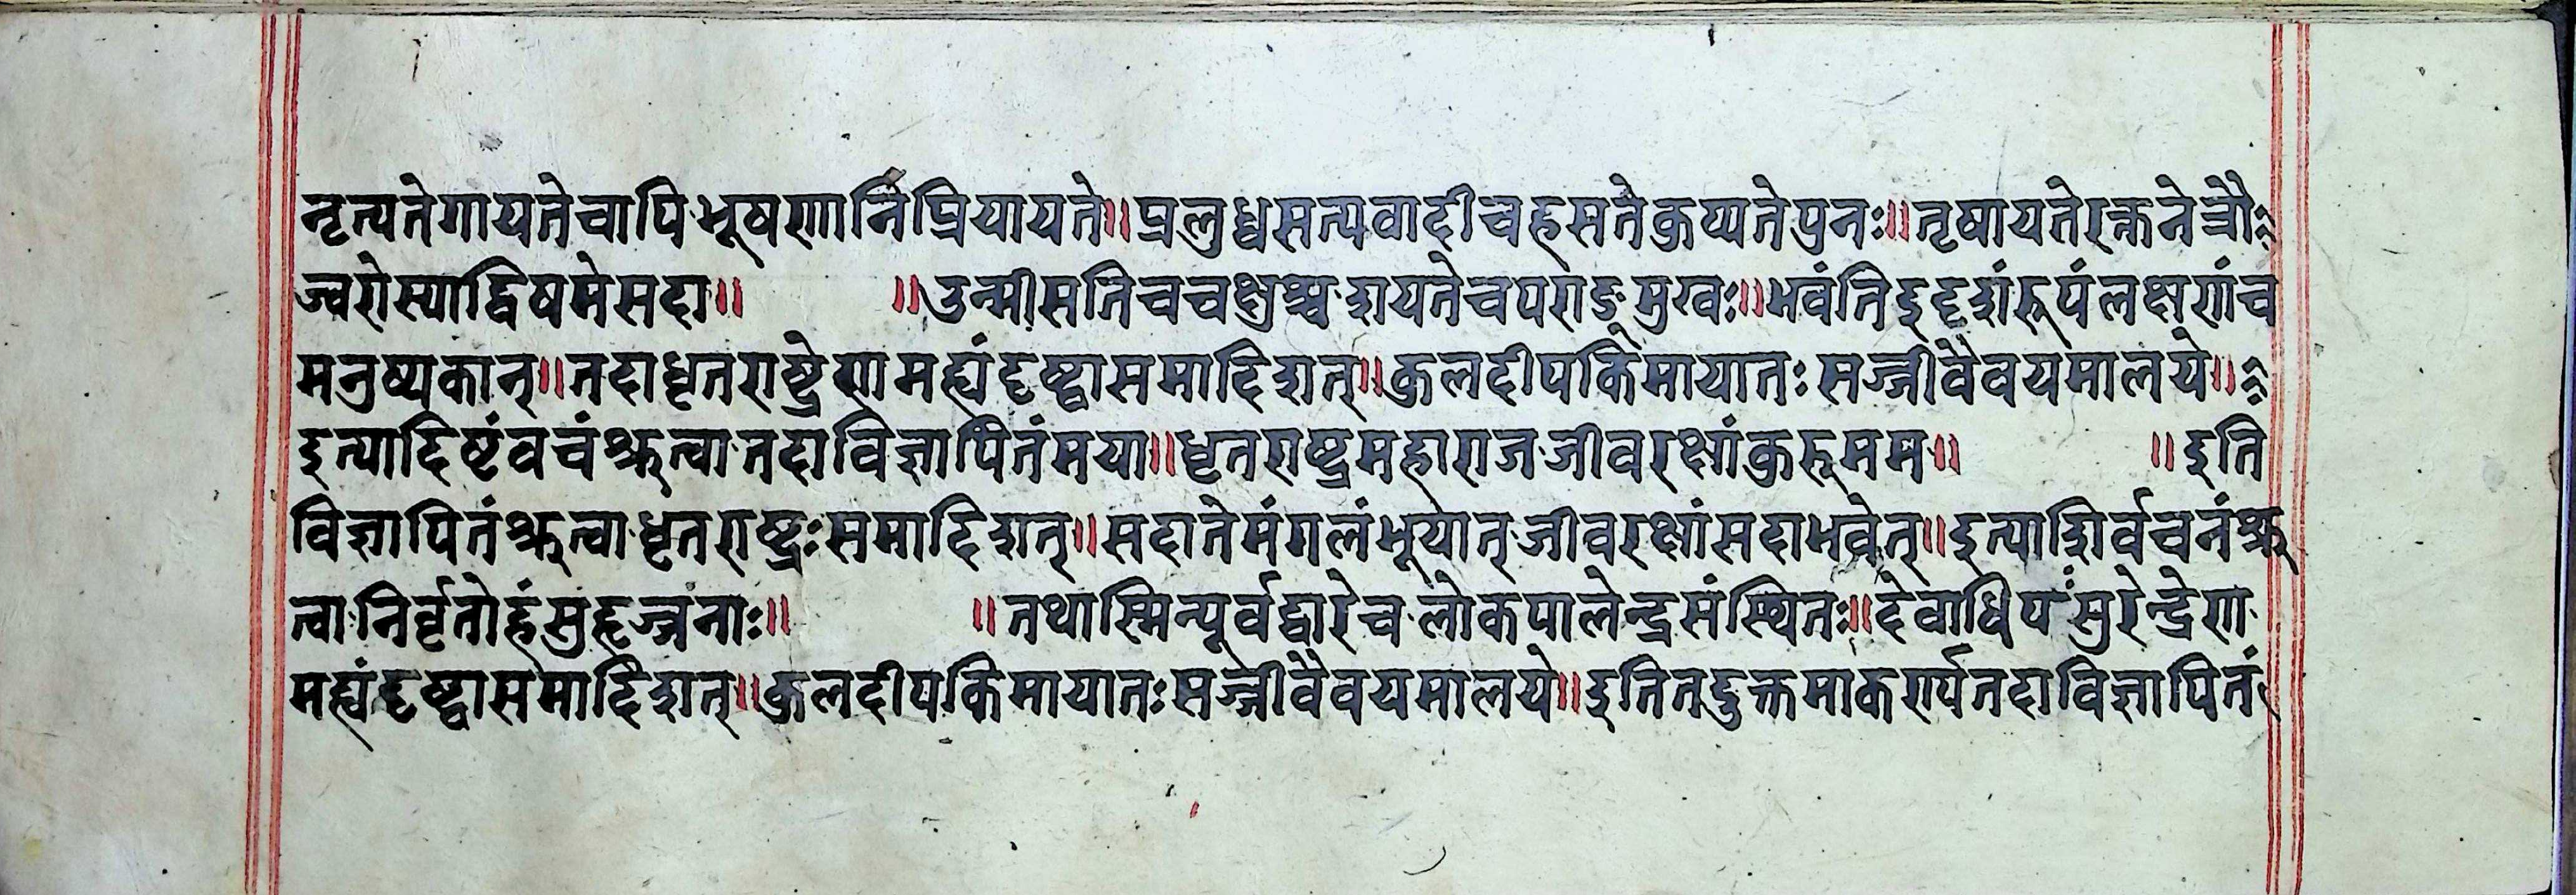 नृत्यते गायते चापि भूषणानि प्रियायते॥ प्रलुध्वसत्यवादी च हसते कुप्यते पुनः॥ तृषायते रक्तनेत्रौ
ज्वरो स्याद्विषमे सदा॥ ॥ उन्मीसति च चक्षुश्च दायते च पराङमुखः॥ भवंति इदृशं रूपं लक्षणं च
मनुष्यकान्॥ तदा धृतराष्ट्रेण मह्यं दृष्ट्वा समादिशत्॥ कुलदीप किमायातः सज्जीवैव यमालये॥
इत्यादिष्टं वचं श्रुत्वा तदा विज्ञापितं मया॥ धृतराष्ट्र महाराज जीवरक्षां कुरू मम॥ ॥ इति
विज्ञापितं श्रुत्वा धृतराष्ट्रः समादिशत्॥ सदा ते मंगलं भूयात् जीवरक्षां सदा भवेत्॥ इत्याशिर्वचनं श्रु
त्वा निर्वृतोहं सुहृज्जनाः॥ ॥ तथास्मिन्पूर्वद्वारे च लोकपालेन्द्र संस्थितः॥ देवाधिपं सुरेन्द्रेण
मह्यं दृष्ट्वा समादिशत्॥ कुलदीप किमायातः सज्जीवैव यमालये॥ इति तद्रुक्तमाकर्ण्य तदा विज्ञापितं